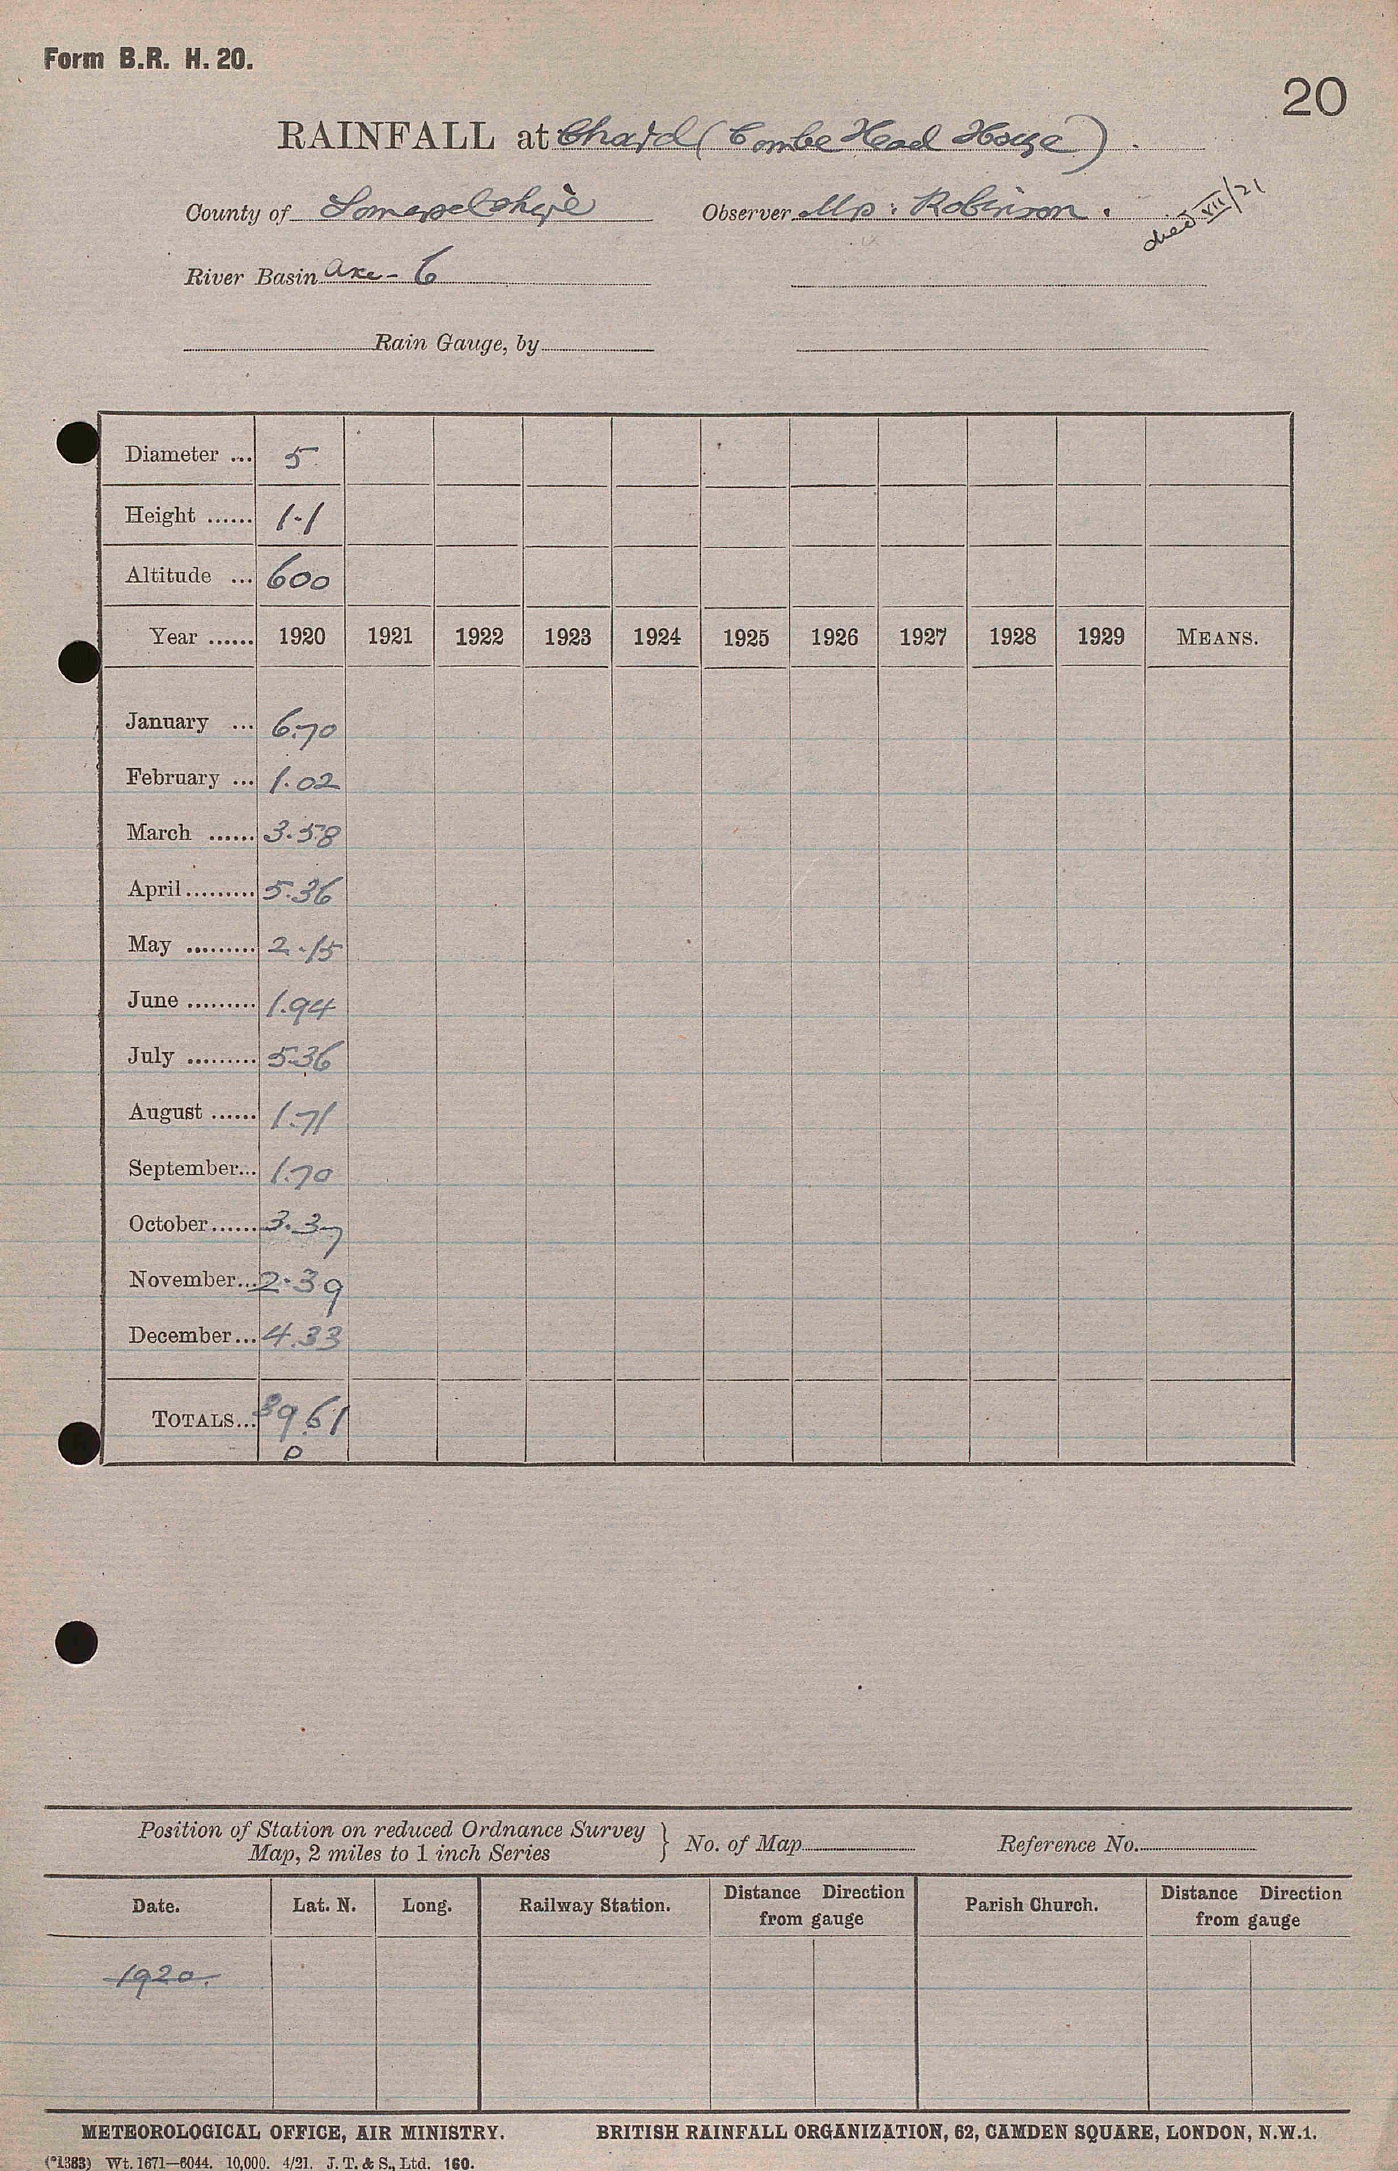 Form B.R. H. 20.
20
RAINFALL at Chard (Combe Head House).
County of Somersetshire Observer Mrs. Robinson.
died VII/21
River Basin Axe - 6
Rain Gauge, by
Diameter ... 5
Height ...... 1.1
Altitude ... 600
Year ...... 1920 1921 1922 1923 1924 1925 1926 1927 1928 1929 MEANS.
January ... 6.70
February ... 1.02
March ...... 3.58
April ......... 5.36
May ......... 2.15
June ......... 1.94
July ......... 5.36
August ...... 1.71
September... 1.70
October...... 3.37
November... 2.39
December... 4.33
TOTALS... 39.61
D
Position of Station on reduced Ordnance Survey
Map, 2 miles to 1 inch Series } No. of Map Reference No.
Date. Lat. N. Long. Railway Station. Distance Direction from gauge Parish Church. Distance Direction from gauge
1920.
METEOROLOGICAL OFFICE, AIR MINISTRY. BRITISH RAINFALL ORGANIZATION, 62, CAMDEN SQUARE, LONDON, N.W.1.
(*1383) Wt. 1671—6044. 10,000. 4/21. J. T. & S., Ltd. 160.